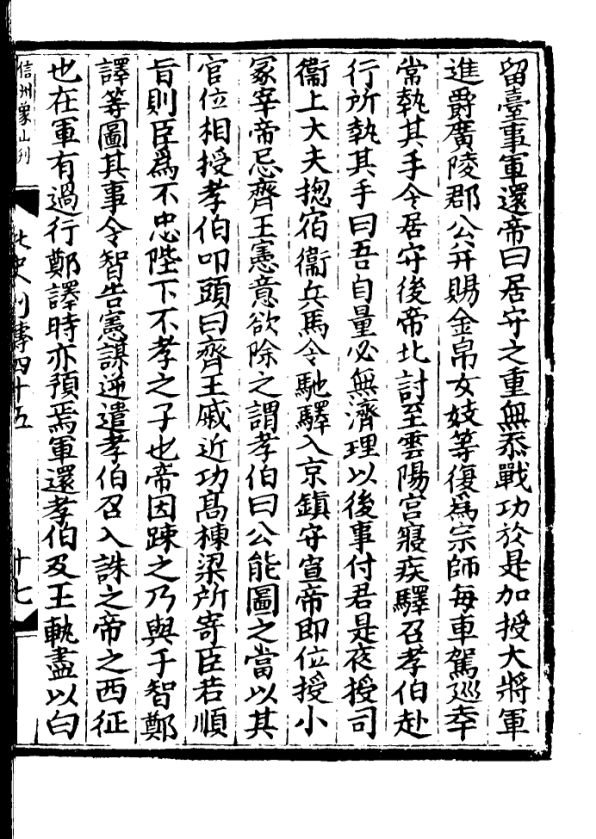 留臺事軍還帝曰居守之重無忝戰功於是加授大將軍
進爵廣陵郡公并賜金帛女妓等復爲宗師每車駕巡幸
常執其手令居守後帝北討至雲陽宮寢疾驛召孝伯赴
行所執其手曰吾自量必無濟理以後事付君是夜授司
衞上大夫揔宿衞兵馬令馳驛入京鎮守宣帝即位授小
冢宰帝忌齊王憲意欲除之謂孝伯曰公能圖之當以其
官位相授孝伯叩頭曰齊王戚近功髙棟梁所寄臣若順
旨則臣爲不忠陛下不孝之子也帝因踈之乃與于智鄭
譯等圖其事令智告憲謀逆遣孝伯召入誅之帝之西征
也在軍有過行鄭譯時亦預焉軍還孝伯及王軌盡以白
信州象山刊
北史列傳四十五
十七